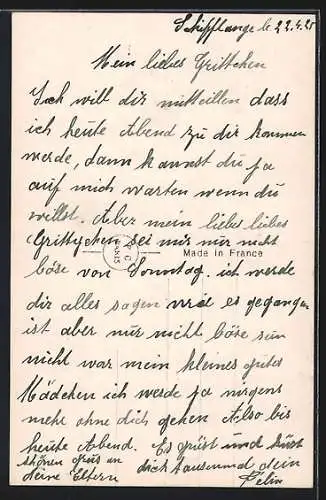 Schifflange le 22.4.25
Mein liebes Grittchen
Ich will dir mitteillen dass
ich heute Abend zu dir kommen
werde, dann kannst du ja
auf mich warten wenn du
willst. Aber mein liebes liebes
Grittychen sei mir nur nicht
Made in France
böse von Sonntag. ich werde
dir alles sagen wie es gegangen
ist aber nur nicht böse sein
nicht war mein kleines gutes
Mädchen ich werde ja nirgens
mehr ohne dich gehen Also bis
heute Abend. Es grüst und küst
schönen Grus an dich tausenmd dein
deine Eltern